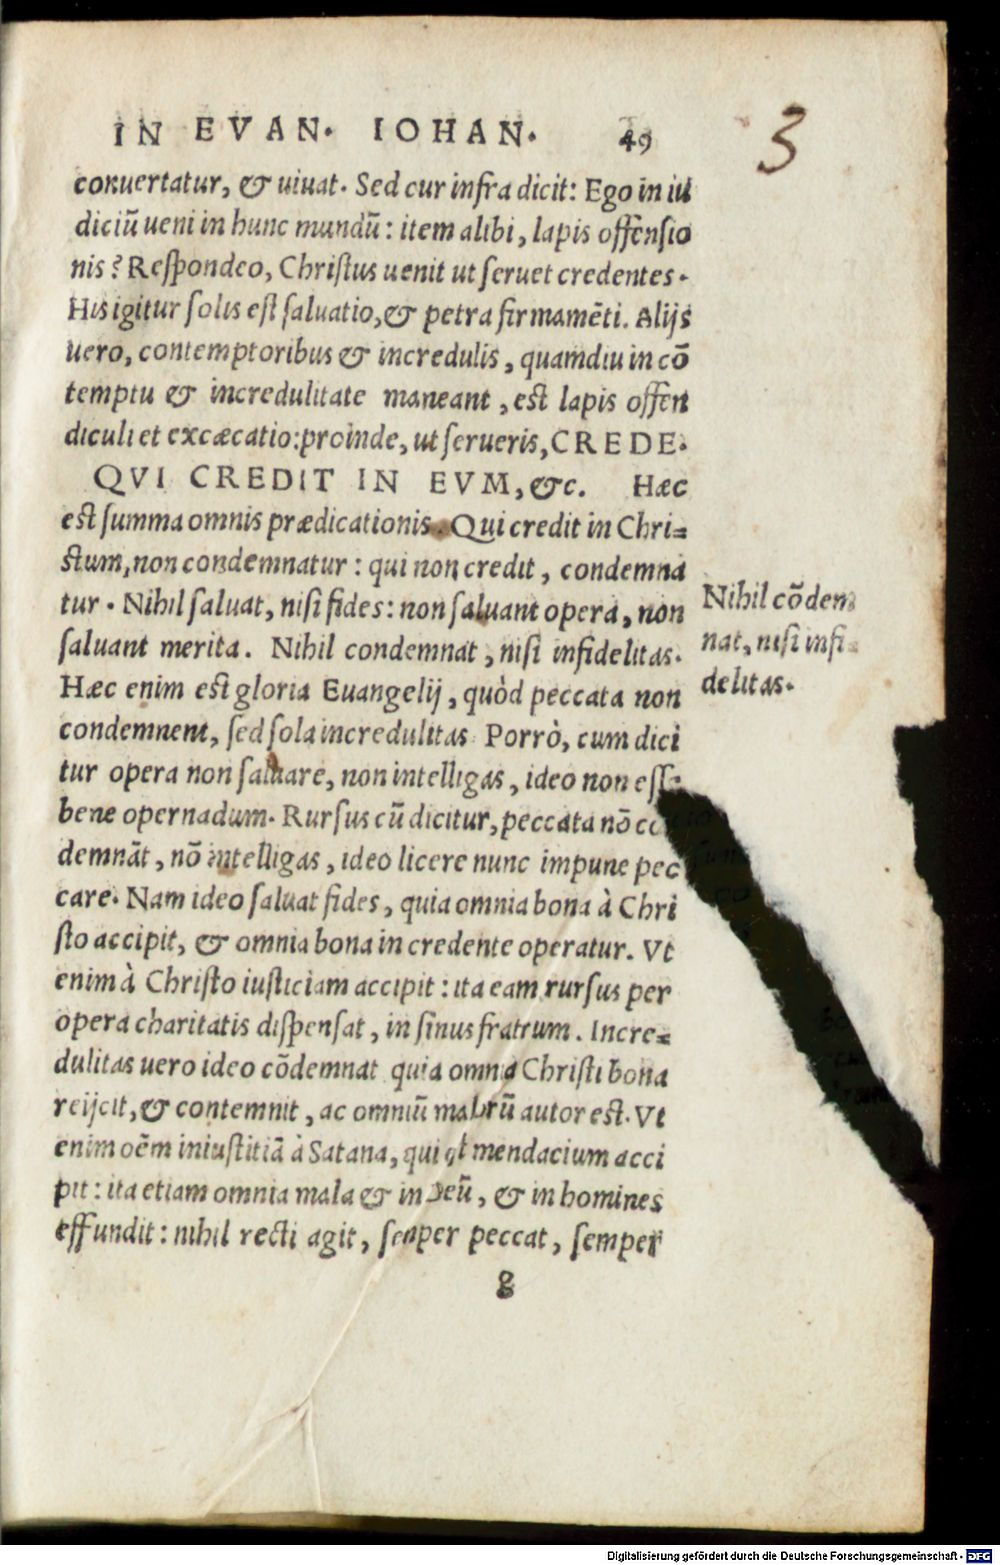 IN EVAN. IOHAN. 49
3
conuertatur, & uiuat. Sed cur infra dicit: Ego in iu
diciũ ueni in hunc mundũ: item alibi, lapis offensio
nis? Respondeo, Christus uenit ut seruet credentes.
His igitur solis est saluatio, & petra firmamẽti. Alijs
uero, contemptoribus & incredulis, quamdiu in cõ
temptu & incredulitate maneant, est lapis offen
diculi et excæcatio: proinde, ut serueris, CREDE.
QVI CREDIT IN EVM, &c. Hæc
est summa omnis prædicationis. Qui credit in Chri=
stum, non condemnatur: qui non credit, condemna
tur. Nihil saluat, nisi fides: non saluant opera, non
saluant merita. Nihil condemnat, nisi infidelitas.
Hæc enim est gloria Euangelij, quòd peccata non
condemnent, sed sola incredulitas. Porrò, cum dici
tur opera non saluare, non intelligas, ideo non esse
bene opernadum. Rursus cũ dicitur, peccata nõ
demnãt, nõ intelligas, ideo licere nunc impune pec
care. Nam ideo saluat fides, quia omnia bona à Chri
sto accipit, & omnia bona in credente operatur. Vt
enim à Christo iusticiam accipit: ita eam rursus per
opera charitatis dispensat, in sinus fratrum. Incre=
dulitas uero ideo cõdemnat quia omnia Christi bona
reijcit, & contemnit, ac omniũ malorũ autor est. Vt
enim oẽm iniustitiã à Satana, qui est mendacium acci
pit: ita etiam omnia mala & in Deũ, & in homines
effundit: nihil recti agit, semper peccat, semper
g
Nihil cõdem
nat, nisi infi=
delitas.
Digitalisierung gefördert durch die Deutsche Forschungsgemeinschaft - DFG